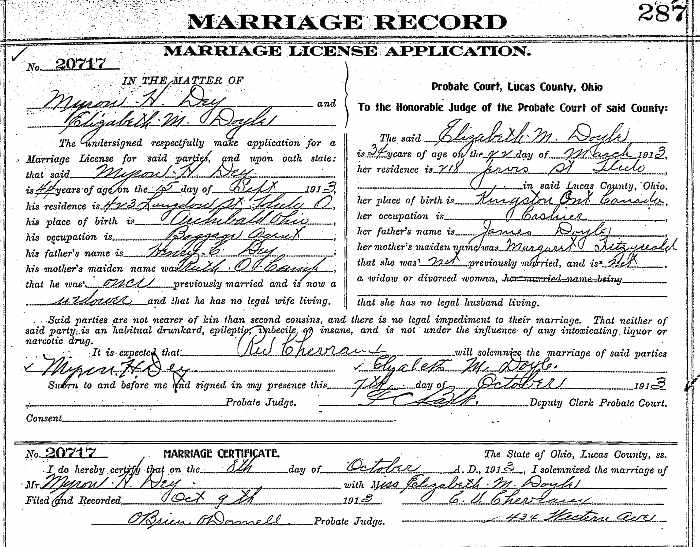 MARRIAGE RECORD
287
MARRIAGE LICENSE APPLICATION.
No. 20717
IN THE MATTER OF
Myron H. Dey and
Elizabeth M. Doyle
The undersigned respectfully make application for a
Marriage License for said parties, and upon oath state:
that said Myron H. Dey
is 44 years of age on the 15 day of Sept 1913
his residence is 423 Langdon St. Toledo O.
his place of birth is Archibald Ohio
his occupation is Baggage Agent
his father's name is Henry E. Dey
his mother's maiden name was Camp
that he was once previously married and is now a
widower and that he has no legal wife living.
Probate Court, Lucas County, Ohio
To the Honorable Judge of the Probate Court of said County:
The said Elizabeth M. Doyle
is 34 years of age on the day of March 1913
her residence is 218 Jervis St Toledo
in said Lucas County, Ohio.
her place of birth is Kingston Ont Canada
her occupation is Cashier
her father's name is James Doyle
her mother's maiden name was Margaret Fitzgerald
that she was not previously married, and is not
a widow or divorced woman, her married name being
that she has no legal husband living.
Said parties are not nearer of kin than second cousins, and there is no legal impediment to their marriage. That neither of
said party is an habitual drunkard, epileptic, imbecile or insane, and is not under the influence of any intoxicating liquor or
narcotic drug.
It is expected that Rev will solemnize the marriage of said parties
Myron H. Dey Elizabeth M. Doyle.
Sworn to before me and signed in my presence this 7th day of October 1913
Probate Judge. Deputy Clerk Probate Court.
Consent
No. 20717 MARRIAGE CERTIFICATE. The State of Ohio, Lucas County, ss.
I do hereby certify that on the 8th day of October A. D., 1913 I solemnized the marriage of
Mr Myron H. Dey with Miss Elizabeth M. Doyle
Filed and Recorded Oct 9th 1913
O'Brien O'Donnell Probate Judge. 434 Western Ave